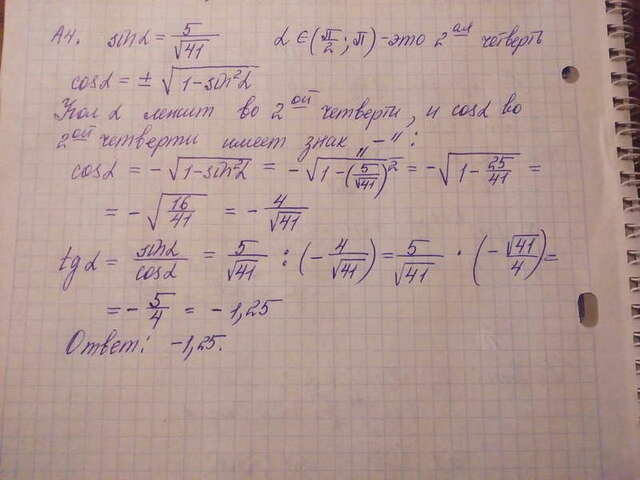 А4. sinα = 5/√41   α ∈ (π/2; π) - это 2 ая четверть
cosα = ± √(1-sin²α)
Угол α лежит во 2 ой четверти, и cosα во
2 ой четверти имеет знак „-“:
cosα = -√(1-sin²α) = -√(1-(5/√41)²) = -√(1-25/41) =
= -√(16/41) = -4/√41
tgα = sinα/cosα = 5/√41 : (-4/√41) = 5/√41 · (-√41/4) =
= -5/4 = -1,25
Ответ: -1,25.